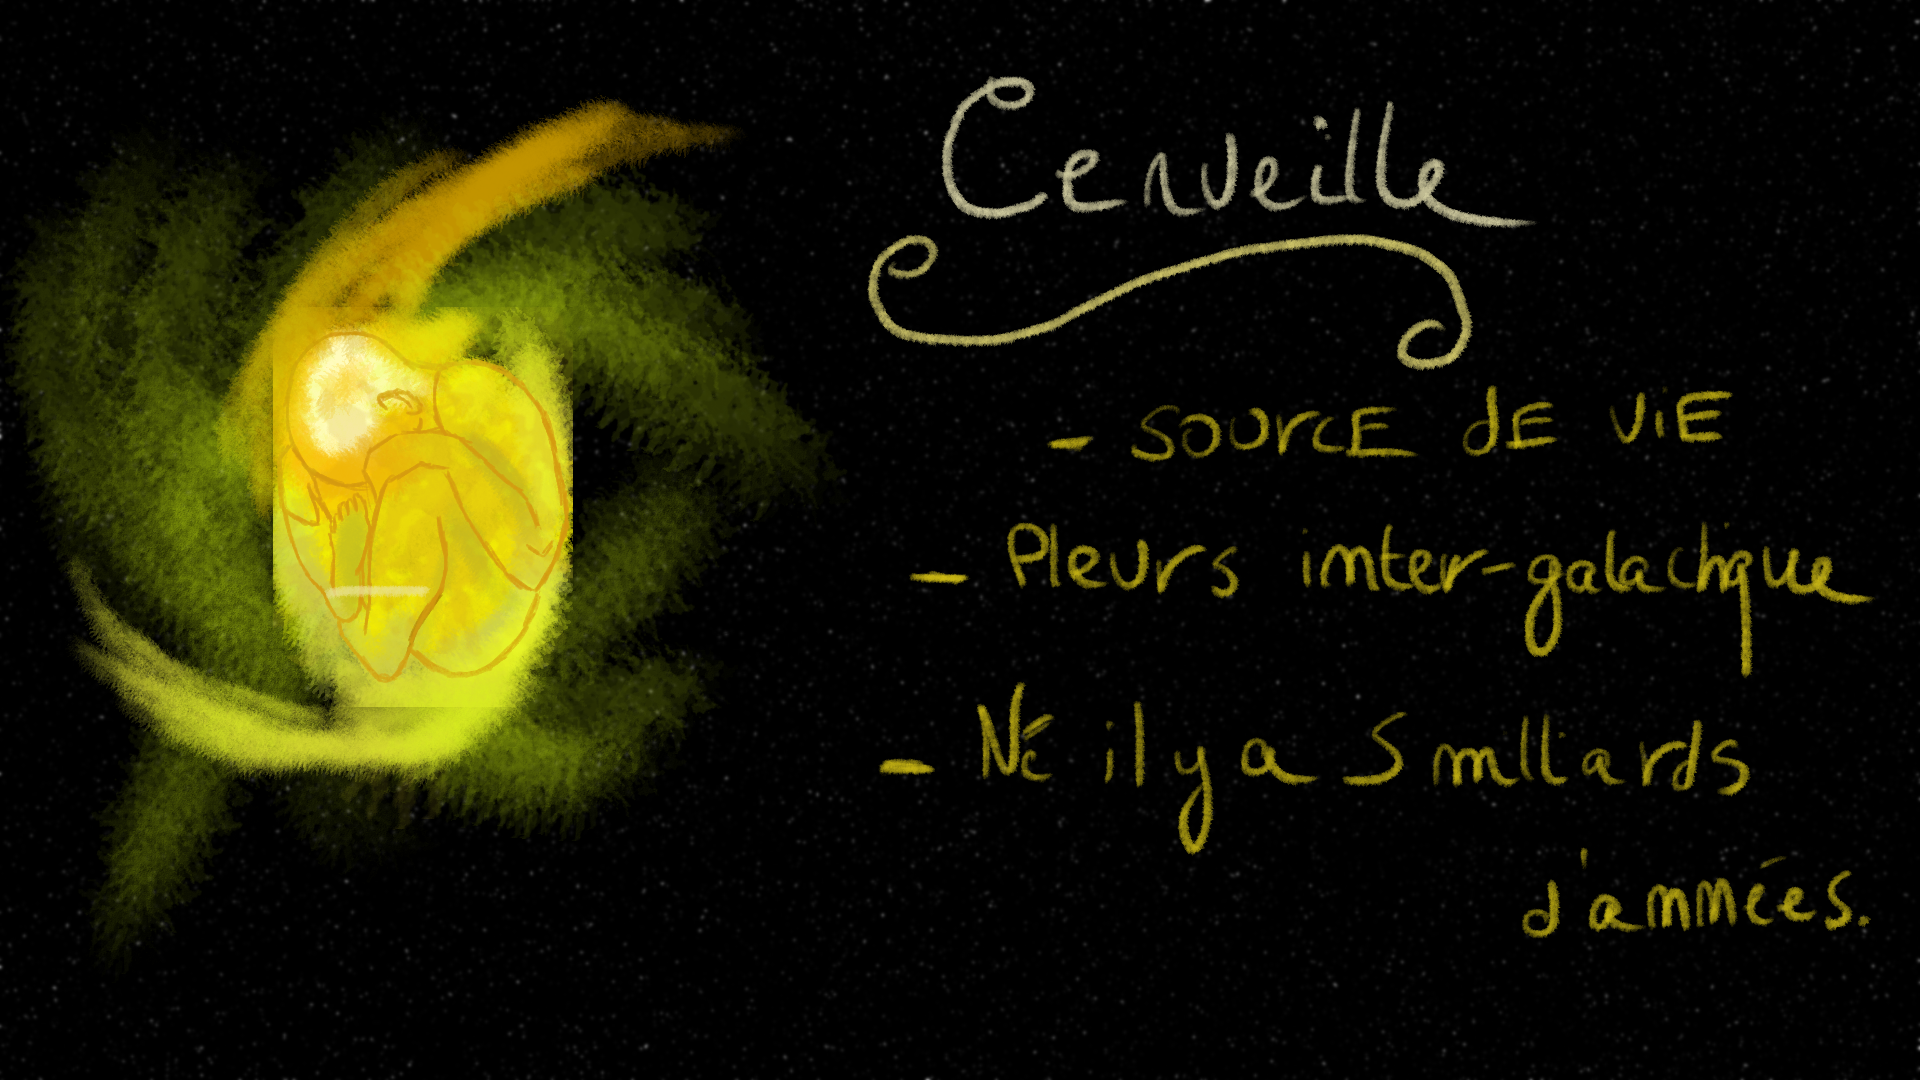 Cerveille
- SOURCE DE VIE
- Pleurs inter-galactique
- Né il y a 5 milliards
d'années.